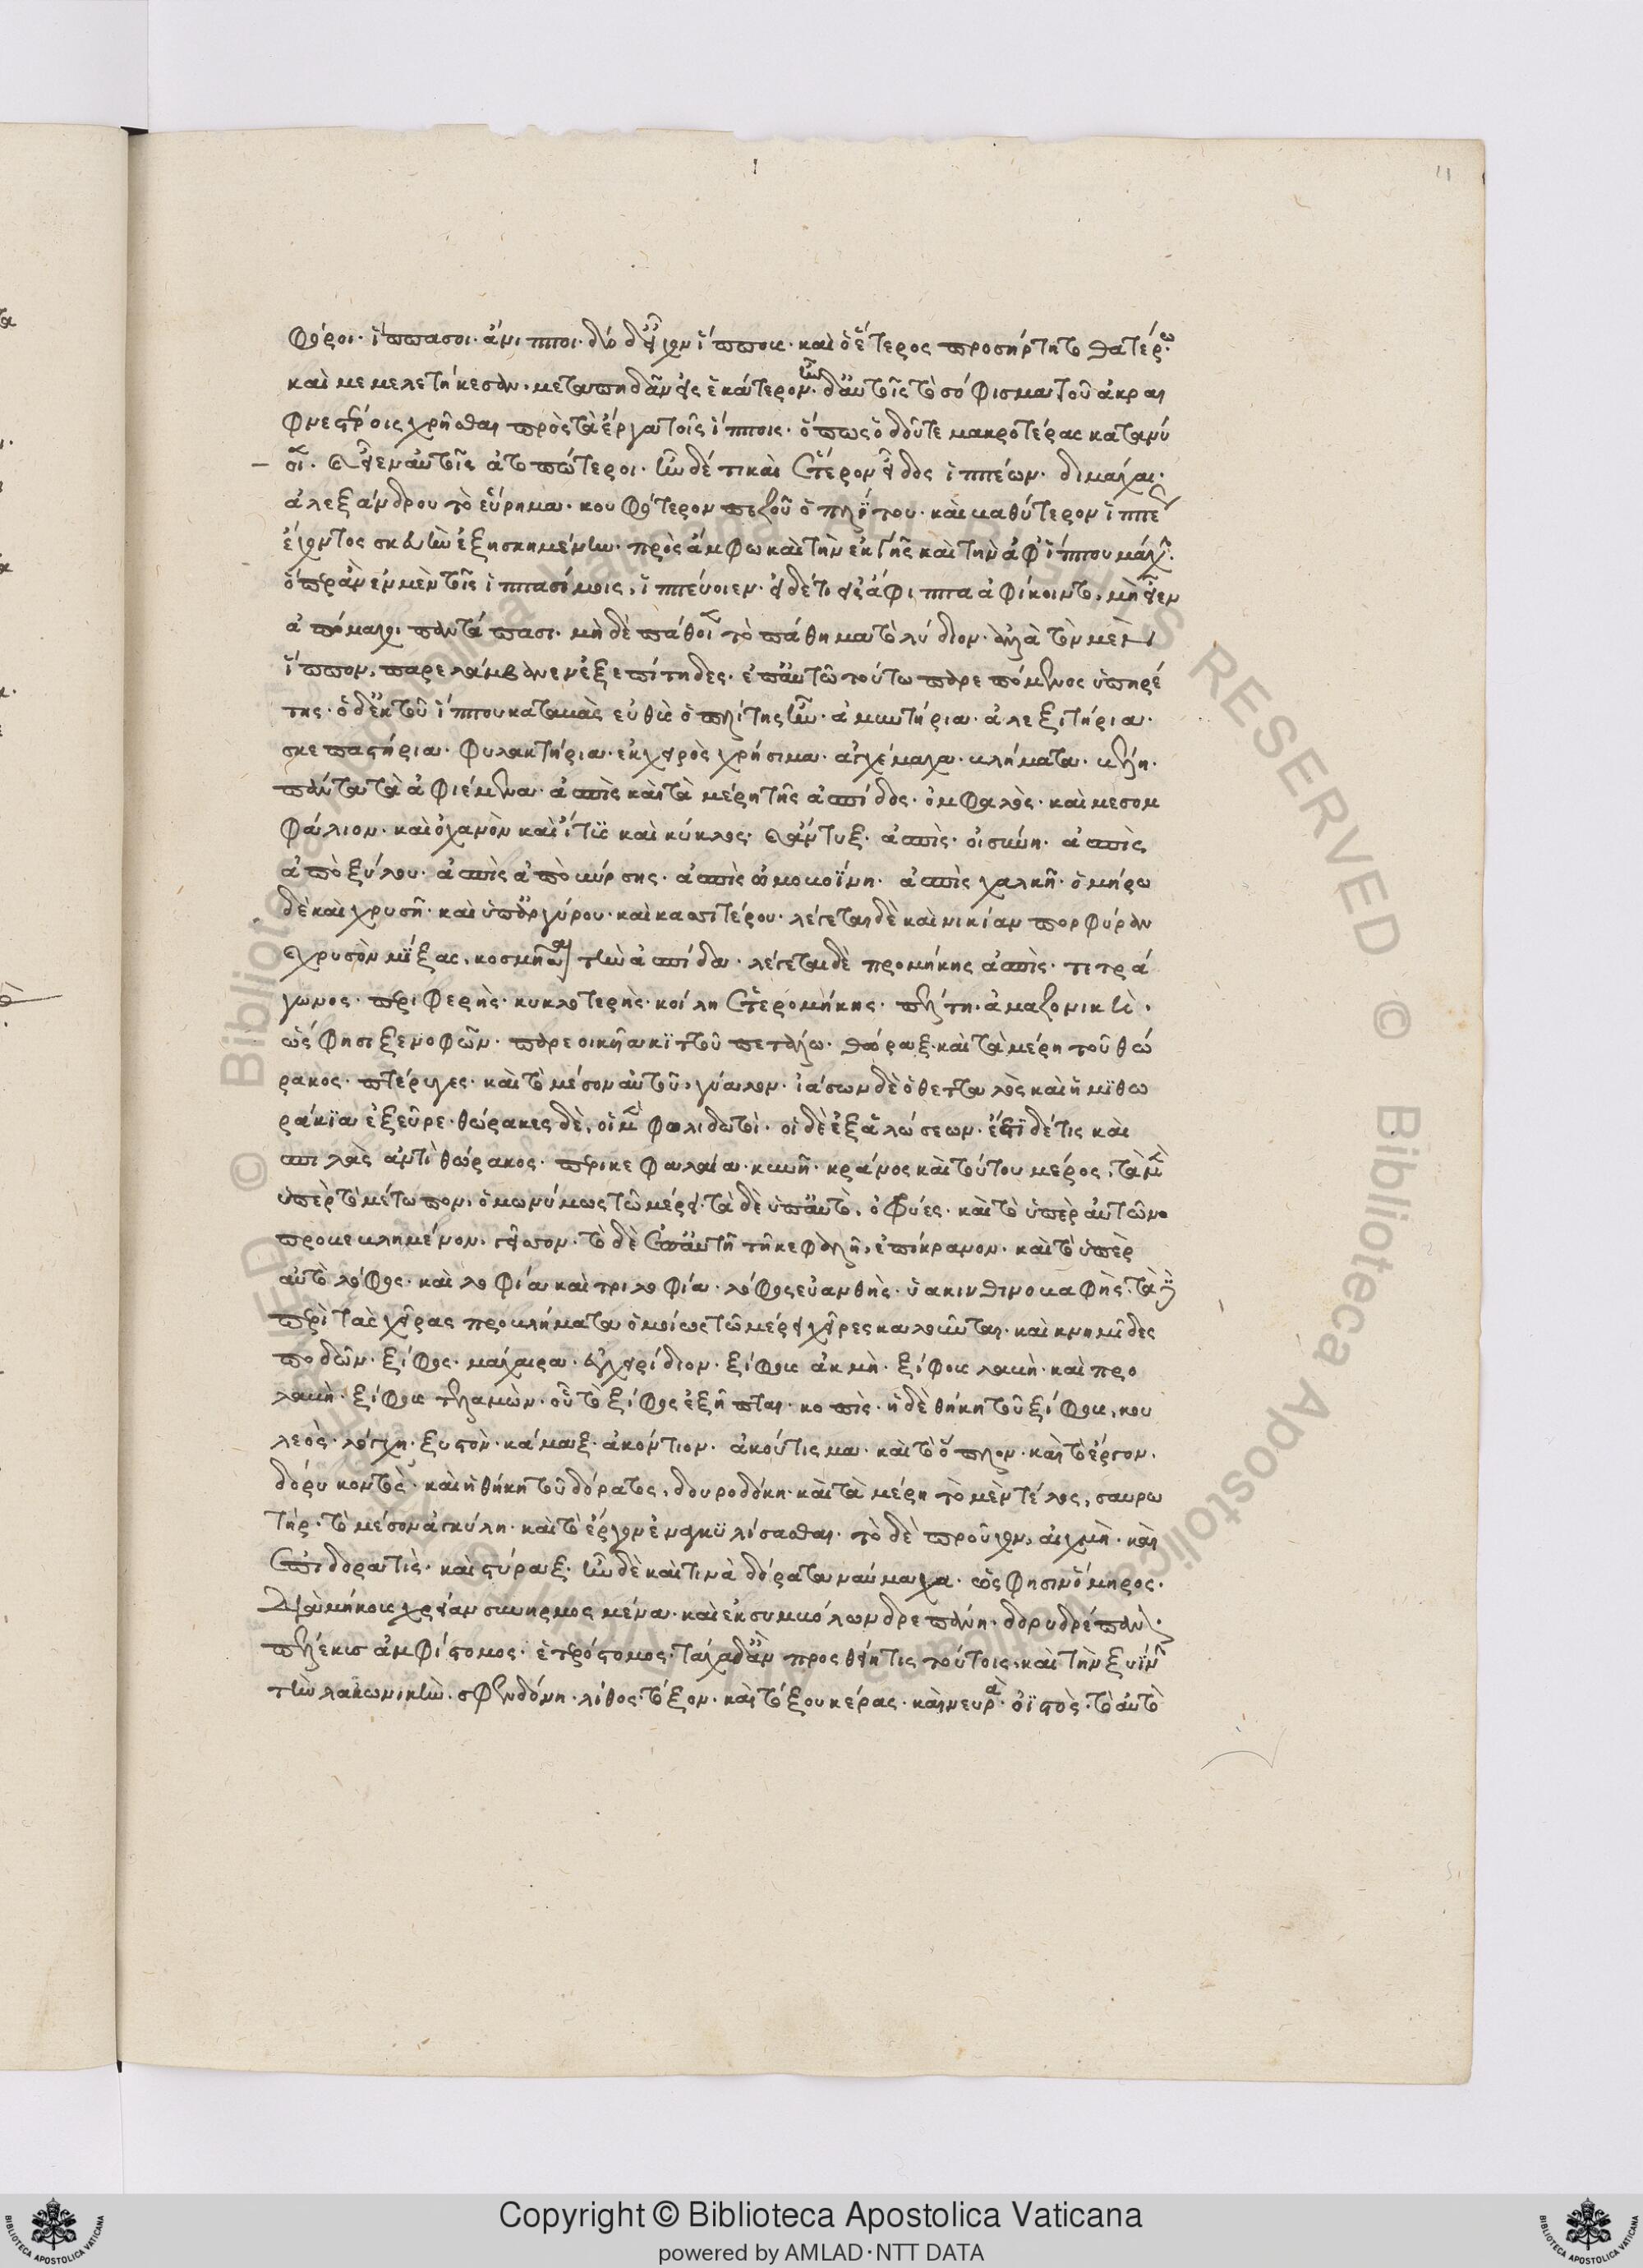 11
φόροι· ἵππασοι· ἄμιπποι· δύο δ' εἶχον ἵππους· καὶ ὁ ἕτερος προσήρτητο θατέρω·
καὶ μεμελετήκεσαν· μεταπηδᾶν εἰς ἑκάτερον· ἦν δ' αὐτοῖς τὸ σόφισμα τοῦ ἀκραι
φνεστέροις χρῆσθαι πρὸς τὰ ἔργα τοῖς ἵπποις· ὅπως ὁδούς τε μακροτέρας κατανύ
οι· καὶ εἶεν αὐτοῖς ἀτοπώτεροι· ἦν δέ τι καὶ ἕτερον εἶδος ἱππέων· διμάχαι·
ἀλεξάνδρου τὸ εὕρημα· κουφότερον πεζοῦ ὁπλίτου· καὶ βαθύτερον ἱππέως
ἔχοντος σκευὴν ἐξησκημένων· πρὸς ἄμφω καὶ τὴν ἐκ γῆς καὶ τὴν ἀφ' ἵππου μάχην·
ὅπερ ἂν ἐν μὲν τοῖς ἱππασίμοις, ἱππεύοιεν· εἰ δέ τι εἰς ἄφιππα ἀφίκοιντο, μὴ εἶεν
ἀπόμαχοι παντάπασι· μὴ δὲ πάθοιεν τὸ πάθημα τὸ λύδιον· ἀλλὰ τὸν μὲν
ἵππον, παρελάμβανεν ἐξεπίτηδες· ἐπ' αὐτῶ τούτω παρεπόμενος ὑπηρέ
της· ὁ δ' ἐκ τοῦ ἵππου καταβὰς εὐθὺς ὁπλίτης ἦν· ἀμυντήρια· ἀλεξιτήρια·
σκεπαστήρια· φυλακτήρια· ἐκ χειρὸς χρήσιμα· ἀγχέμαχα· βλήματα· βέλη·
πάντα τὰ ἀφιέμενα· ἀσπὶς καὶ τὰ μέρη τῆς ἀσπίδος· ὀμφαλὸς· καὶ μεσομ
φάλιον· καὶ ὀχανὸν καὶ ἴτυς καὶ κύκλος· καὶ ἄντυξ· ἀσπὶς· οἰσυίνη· ἀσπὶς
ἀπὸ ξύλου· ἀσπὶς ἀπὸ βύρσης· ἀσπὶς ὠμοβοΐνη· ἀσπὶς χαλκῆ· ὁμήρω
δὲ καὶ χρυσῆ· καὶ ὑπ' ἀργύρου· καὶ κασσιτέρου· λέγεται δὲ καὶ νικίαν πορφύραν
καὶ χρυσὸν μίξας, κοσμῆσαι τὴν ἀσπίδα· λέγεται δὲ προμήκης ἀσπὶς· τετρά
γωνος· περιφερὴς· κυκλοτερὴς· κοίλη ἑτερομήκης· πέλτη· ἀμαζονικὴ·
ὥς φησι ξενοφῶν· παρεοικῆα κιττοῦ πετάλω· θώραξ· καὶ τὰ μέρη τοῦ θώ
ρακος· πτέρυγες· καὶ τὸ μέσον αὐτοῦ, γύαλον· ἰάσων δὲ ὁ θετταλὸς καὶ ἡμιθω
ράκια ἐξεῦρε· θώρακες δὲ, οἱ μὲν φολιδωτοὶ· οἱ δὲ ἐξ ἁλώσεων· ἔστι δέ τις καὶ
σπιλὰς ἀντὶ θώρακος· περικεφαλαία· κυνῆ· κράνος καὶ τούτου μέρος, τὰ μὲν
ὑπὲρ τὸ μέτωπον, ὁμωνύμως τῶ μέρει· τὰ δὲ ὑπ' αὐτὸ, ὀφρύες· καὶ τὸ ὑπὲρ αὐτῶν
προβεβλημένον, γεῖσον· τὸ δὲ ἐπ' αὐτῆ τῆ κεφαλῆ, ἐπίκρανον· καὶ τὸ ὑπὲρ
αὐτὸ λόφος· καὶ λοφία καὶ τριλοφία· λόφος εὐανθὴς· ὑακινθινοβαφής· τὰ δὲ
περὶ τὰς χεῖρας προβλήματα ὁμοίως τῶ μέρει χεῖρες καλοῦνται· καὶ κνημῖδες
ποδῶν· ξίφος· μάχαιρα· ἐγχειρίδιον· ξίφους ἀκμὴ· ξίφους λαβὴ· καὶ προ
λαβὴ· ξίφους τελαμὼν· οὗ τὸ ξίφος ἐξῆπται· κοπὶς· ἡ δὲ θήκη τοῦ ξίφους, κου
λεός· λόγχη· ξυστὸν· κάμαξ· ἀκόντιον· ἀκόντισμα· καὶ τὸ ὅπλον· καὶ τὸ ἔργον·
δόρυ κοντὸς· καὶ ἡ θήκη τοῦ δόρατος, δουροδόκη· καὶ τὰ μέρη τὸ μὲν τέλος, σαυρω
τήρ· τὸ μέσον ἀγκύλη· καὶ τὸ ἔργον ἐναγκυλίσασθαι· τὸ δὲ προῦχον, αἰχμὴ· καὶ
ἐπιδορατὶς· καὶ στύραξ· ἦν δὲ καὶ τινὰ δόρατα ναύμαχα· ὥς φησιν ὅμηρος·
διὰ μήκους χρείαν συνηρμοσμένα· καὶ ἐκ συμβόλων δρεπάνη· δορυδρέπανον·
πέλεκυς ἀμφίστομος· ἑτερόστομος· τάχα δ' ἂν προσθείη τις τούτοις, καὶ τὴν ξυΐνην
τὴν λακωνικὴν· σφενδόνη· λίθος· τόξον· καὶ τόξου κέρας· καὶ νευρὰ· ὀϊστὸς· τὸ αὐτὸ
Copyright © Biblioteca Apostolica Vaticana
powered by AMLAD·NTT DATA